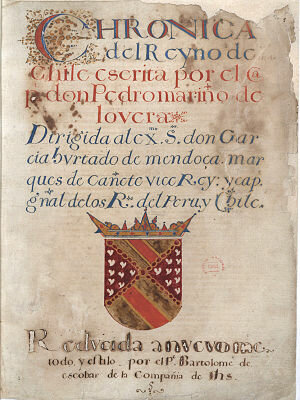 CHRONICA
del Reyno de
Chile escrita por el Ca
p. don Pedro mariño de
lovera
Dirigida al exmo. S. don Gar
cia hurtado de mendoça. mar
ques de Cañete vice Rey: y cap.
gñal de los Rs. del Peru, y Chile.
Reducida a nuevo me
todo, y estilo por el Pe. Bartolome de
escobar de la Compañia de Ihs